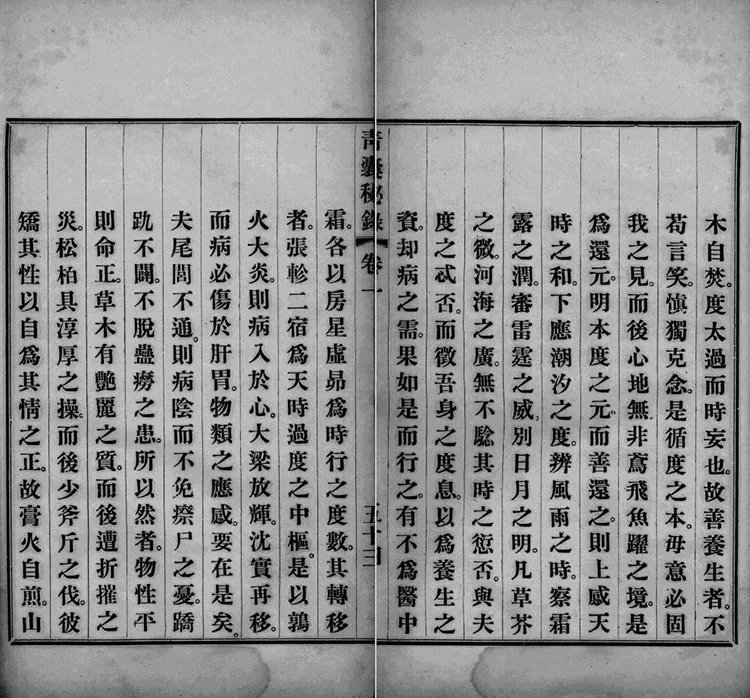 木自焚。度太過而時妄也。故善養生者。不
苟言笑。愼獨克念。是循度之本。毋意必固
我之見。而後心地無非鳶飛魚躍之境。是
爲還元。明本度之元。而善還之。則上感天
時之和。下應潮汐之度。辨風雨之時。察霜
露之潤。審雷霆之威。別日月之明。凡草芥
之微。河海之廣。無不騐其時之愆否。與夫
度之忒否。而徵吾身之度息。以爲養生之
資。却病之需。果如是而行之。有不爲醫中
青囊秘錄 卷一
霜。各以房星虛昴爲時行之度數。其轉移
者。張軫二宿爲天時過度之中樞。是以鶉
火大炎。則病入於心。大梁放輝。沈實再移。
而病必傷於肝胃。物類之應感。要在是矣。
夫尾閭不通。則病陰而不免瘵尸之憂。蹻
不鬭。不脫蠱癆之患。所以然者。物性平
則命正。草木有艷麗之質。而後遭折摧之
災。松柏具淳厚之操。而後少斧斤之伐。彼
矯其性以自爲其情之正。故膏火自煎。山